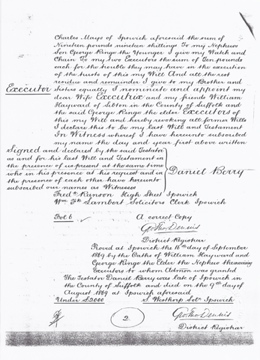 Charles Mays of Ipswich aforesaid the sum of
Nineteen pounds nineteen shillings To my Nephew
Son George Ringe the Younger I give my Watch and
Chain To my two Executors the sum of Ten pounds
each for the trouble they may have in the execution
of the trusts of this my Will And all the rest
residue and remainder I give to my Brother and
Sisters equally I nominate and appoint my
dear Wife Executrix and my friends William
Hayward of Sibton in the County of Suffolk and
the said George Ringe the elder Executors of
this my Will and hereby revoking all former Wills
I declare this to be my Last Will and Testament
In Witness whereof I have hereunto subscribed
my name the day and year first above written
Executor
Signed and declared by the said Testator
as and for his last Will and Testament in the
presence of us present at the same time
who in his presence at his request and in
the presence of each other have hereunto
subscribed our names as Witnesses
Daniel Berry
High Street Ipswich
Lambert Solicitors Clerk Ipswich
A correct Copy
District Registrar
Proved at Ipswich the 16th day of September
1889 by the Oaths of William Hayward and
George Ringe the Elder the Nephew the surviving
Executors to whom Admon was granted
The Testator Daniel Berry was late of Ipswich in
the County of Suffolk and died on the 9th day of
August 1889 at Ipswich aforesaid
Under £2000
Ipswich
2
District Registrar